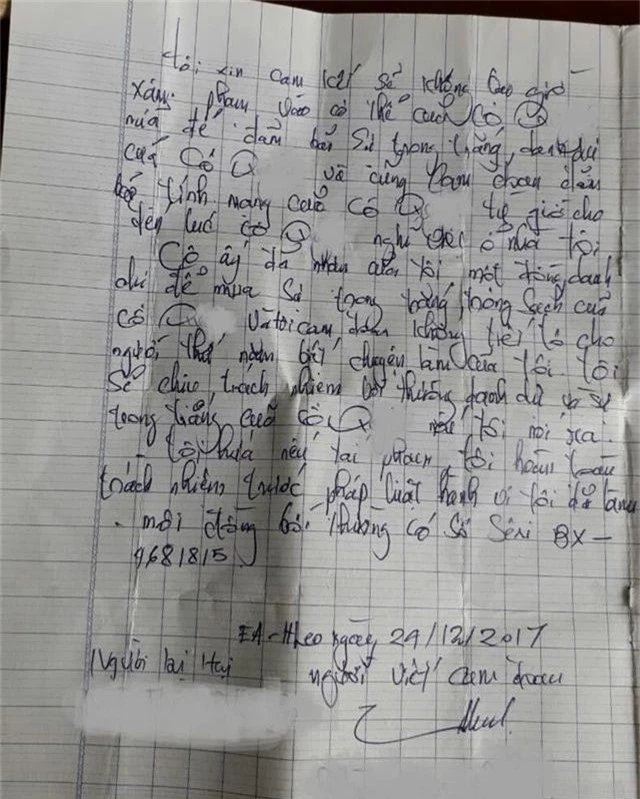 tôi xin cam kết sẽ không bao giờ
xâm phạm vào cơ thể của Cô Q
nữa để đảm bảo sự trong trắng danh dự
của Cô Q và cũng đảm bảo
tính mạng của cô Q từ giờ cho
đến lúc cô Q nghỉ ở nhà tôi
Cô ấy đã nhận của tôi một đồng danh
dự để mua sự trong trắng trong sạch của
cô Q và tôi cam đoan không tiết lộ cho
người thứ năm biết chuyện làm của tôi. Tôi
sẽ chịu trách nhiệm bồi thường danh dự và sự
trong trắng của cô Q nếu tôi nói ra.
- Tôi hứa nếu tái phạm tôi hoàn toàn
trách nhiệm trước pháp luật hành vi tôi đã làm
. một đồng bồi thường có số Sêri BX-
9681815
EA-Hleo ngày 24/12/2017
Người bị Hại người viết cam đoan